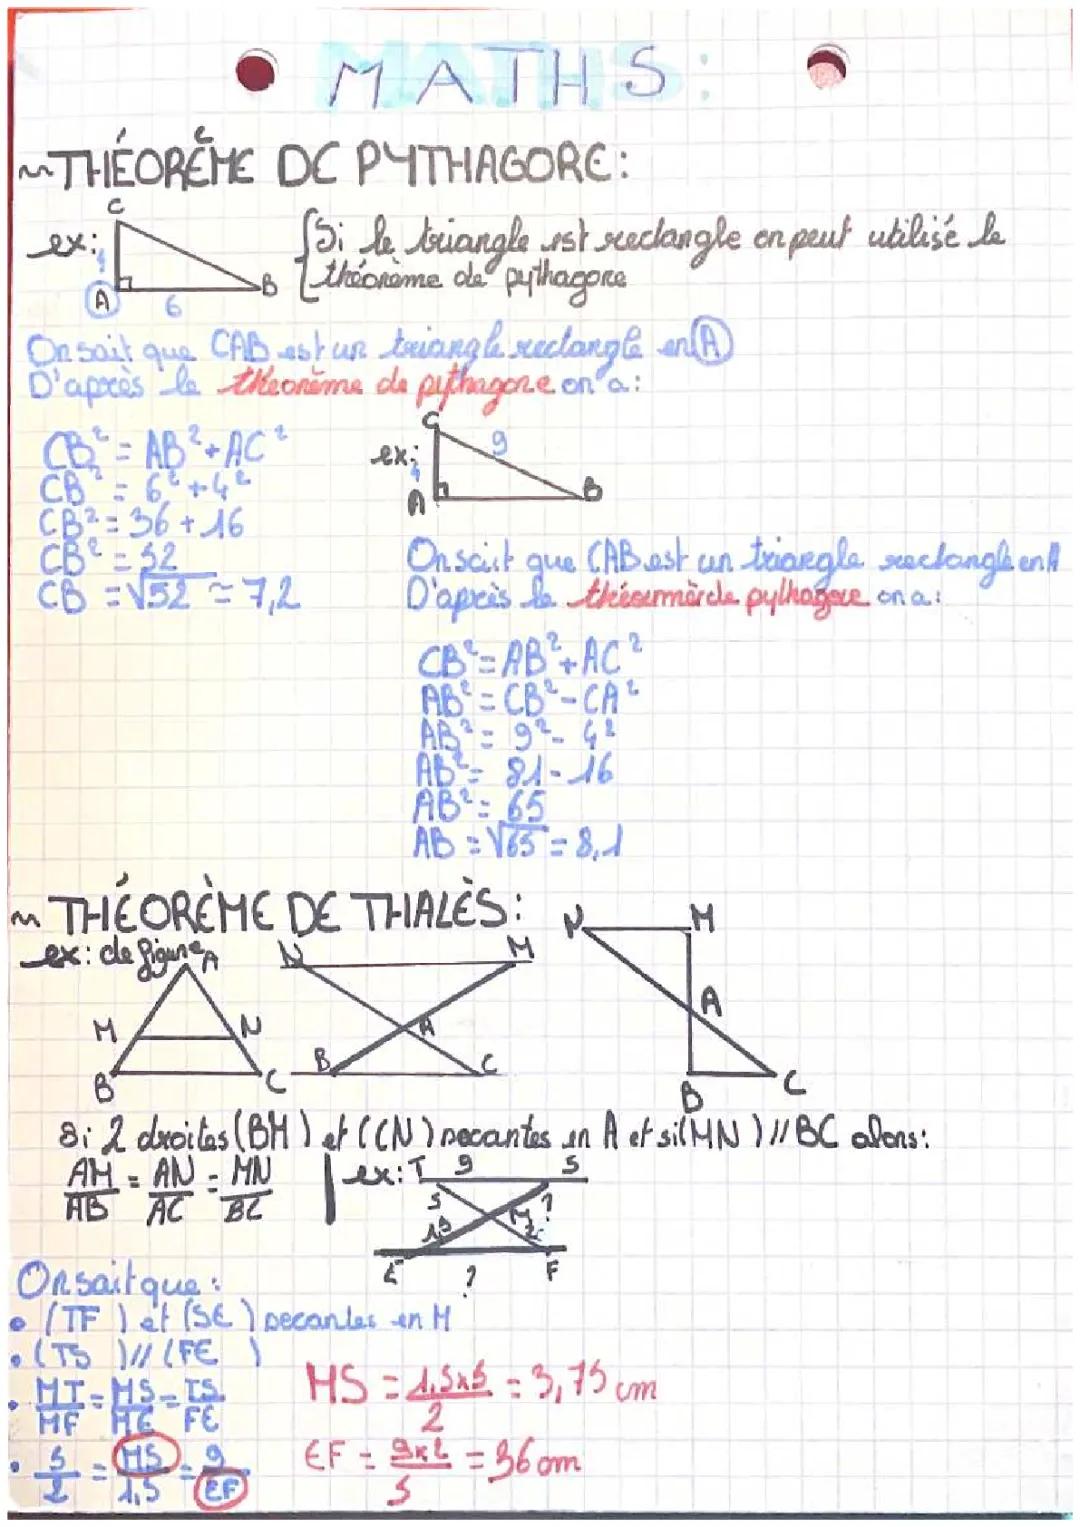 MATHS:
~ THÉORÈME DE PYTHAGORE:
ex:
C
4
A
6
B
Si le triangle est rectangle on peut utilisé le
théorème de pythagore
On sait que CAB est un triangle rectangle en A
D'après le théorème de pythagore on a:
CB² = AB² + AC²
CB² = 6² + 4²
CB² = 36 + 16
CB² = 52
CB = √52 ≃ 7,2
ex:
C
9
4
A
B
On sait que CAB est un triangle rectangle en A
D'après le théorème de pythagore on a:
CB² = AB² + AC²
AB² = CB² - CA²
AB² = 9² - 4²
AB² = 81 - 16
AB² = 65
AB = √65 = 8,1
~ THÉORÈME DE THALÈS:
ex: de figure
A
M N
B C
N M
A
B C
N M
A
B C
Si 2 droites (BM) et (CN) secantes en A et si (MN) // BC alors:
AM/AB = AN/AC = MN/BC
ex: T 9 S
5 ?
1,5 M 2
E ? F
On sait que:
• (TF) et (SE) secantes en M
• (TS) // (FE)
• MT/MF = MS/ME = TS/FE
• 5/2 = MS/1,5 = 9/EF
MS = 1,5x5/2 = 3,75 cm
EF = 9x2/5 = 36 cm